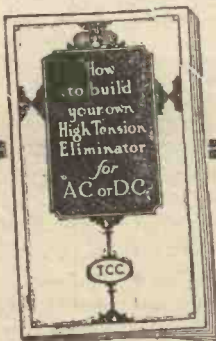 How
to build
your own
High Tension
Eliminator
for
A.C or D.C.
TCC